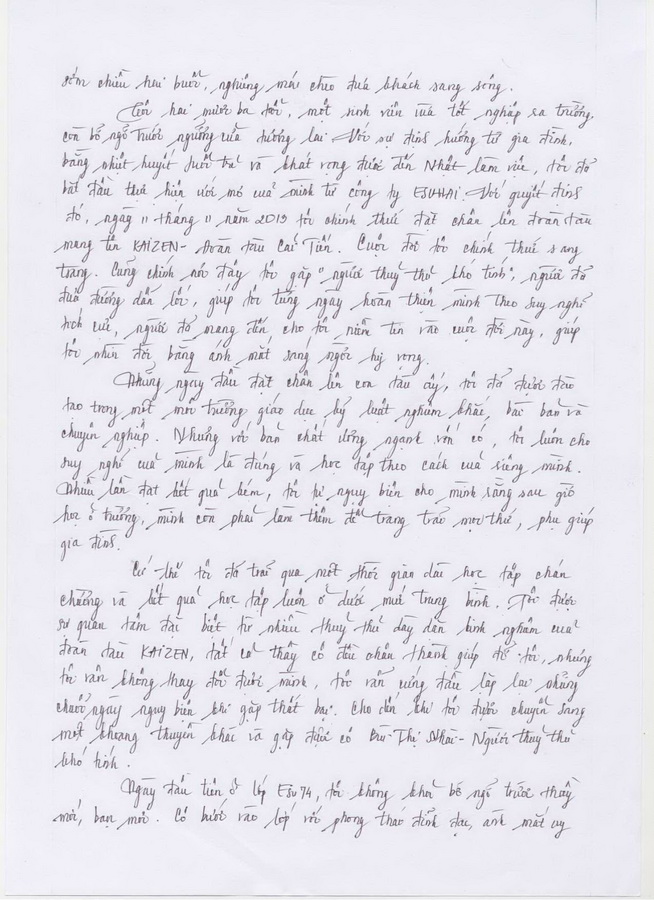 sớm chiều hai buổi, nghiêng mái chèo đưa khách sang sông.
Tôi hai mươi ba tuổi, một sinh viên vừa tốt nghiệp ra trường,
còn bỡ ngỡ trước ngưỡng cửa tương lai. Với sự định hướng từ gia đình,
bằng nhiệt huyết tuổi trẻ và khát vọng được đến Nhật làm việc, tôi đã
bắt đầu thực hiện ước mơ của mình từ công ty ESUHAI. Với quyết định
đó, ngày 11 tháng 11 năm 2013 tôi chính thức đặt chân lên đoàn tàu
mang tên KAIZEN - Đoàn tàu Cải Tiến. Cuộc đời tôi chính thức sang
trang. Cũng chính nơi đây tôi gặp "người thuỷ thủ khó tính", người đã
đưa đường dẫn lối, giúp tôi từng ngày hoàn thiện mình theo suy nghĩ
tích cực, người đã mang đến cho tôi niềm tin vào cuộc đời này, giúp
tôi nhìn đời bằng ánh mắt sáng ngời hy vọng.
Những ngày đầu đặt chân lên con tàu ấy, tôi đã được đào
tạo trong một môi trường giáo dục kỷ luật nghiêm khắc, bài bản và
chuyên nghiệp. Nhưng với bản chất ương ngạnh vốn có, tôi luôn cho
suy nghĩ của mình là đúng và học tập theo cách của riêng mình.
Nhiều lần đạt kết quả kém, tôi tự nguỵ biện cho mình rằng sau giờ
học ở trường, mình còn phải làm thêm để trang trải mọi thứ, phụ giúp
gia đình.
Cứ thế tôi đã trải qua một thời gian dài học tập chán
chường và kết quả học tập luôn ở dưới mức trung bình. Tôi được
sự quan tâm đặc biệt từ nhiều thuỷ thủ dày dặn kinh nghiệm của
đoàn tàu KAIZEN, tất cả thầy cô đều chân thành giúp đỡ tôi, nhưng
tôi vẫn không thay đổi được mình, tôi vẫn cứng đầu lặp lại những
chuỗi ngày nguỵ biện khi gặp thất bại. Cho đến khi tôi được chuyển sang
một khoang thuyền khác và gặp được cô Bùi Thị Nhài - Người thuỷ thủ
khó tính.
Ngày đầu tiên ở lớp Esu74, tôi không khỏi bỡ ngỡ trước thầy
mới, bạn mới. Cô bước vào lớp với phong thái đĩnh đạc, ánh mắt uy